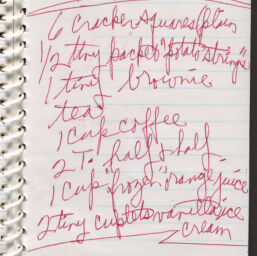 6 cracker squares plain
1/2 tiny packet "potato strings"
1 tiny brownie
tea
1 cup coffee
2 T. half & half
1 cup "frozen" orange juice
2 tiny cuplets vanilla ice
cream